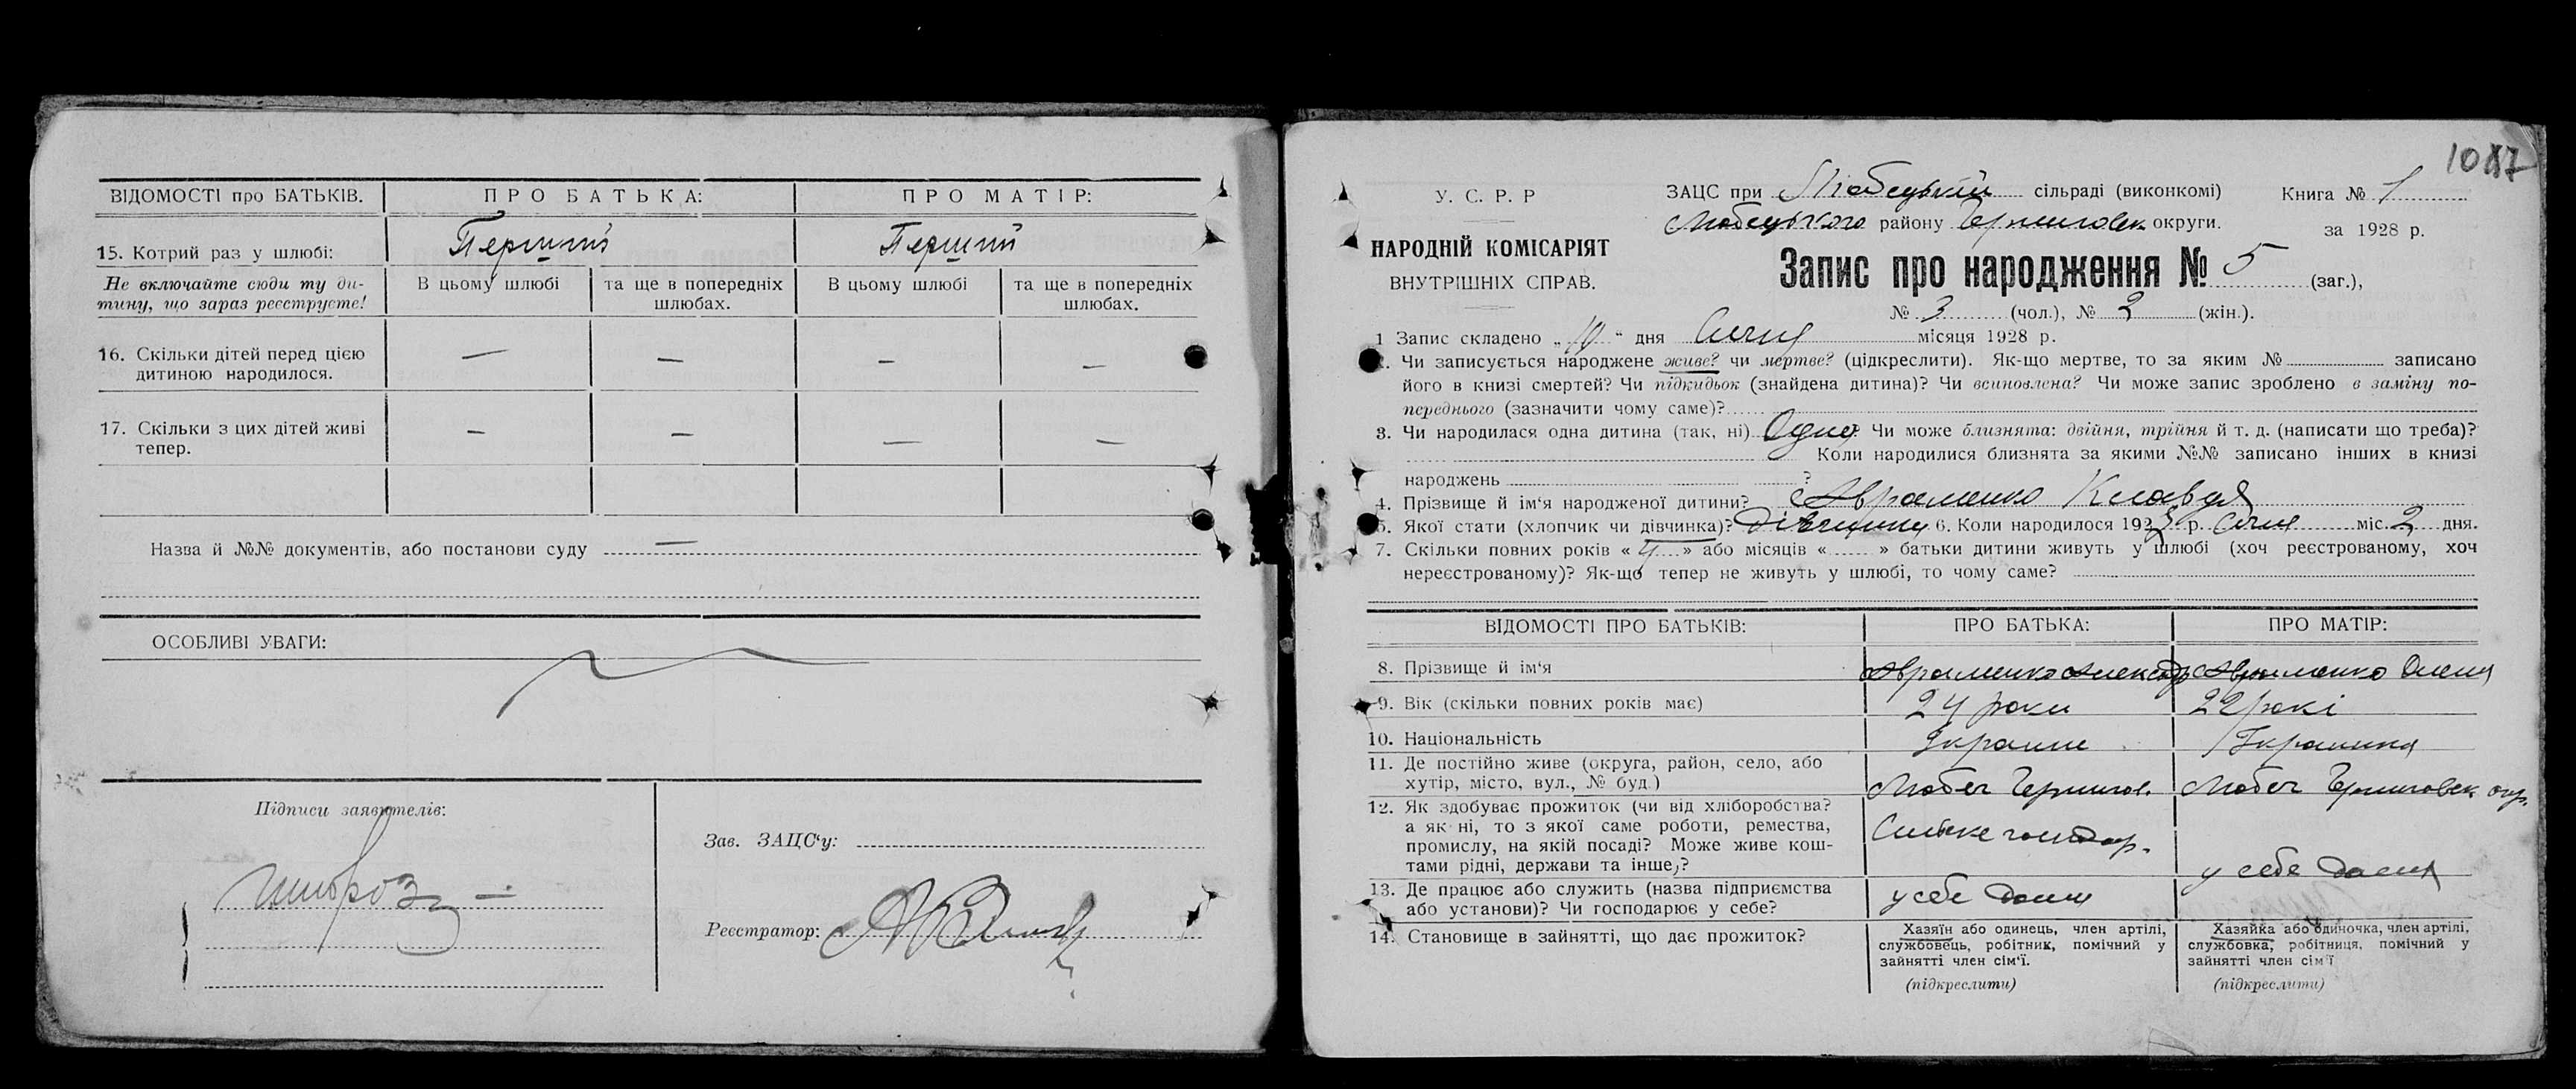 ВІДОМОСТІ про БАТЬКІВ.
ПРО БАТЬКА:
ПРО МАТІР:
15. Котрий раз у шлюбі:
Перший
Перший
Не включайте сюди ту ди-
тину, що зараз реєструєте!
В цьому шлюбі
та ще в попередніх
шлюбах.
В цьому шлюбі
та ще в попередніх
шлюбах.
16. Скільки дітей перед цією
дитиною народилося.
— — — —
17. Скільки з цих дітей живі
тепер.
— — — —
Назва й №№ документів, або постанови суду —
ОСОБЛИВІ УВАГИ:
Підписи заявителів:
Зав. ЗАЦС'у:
Реєстратор:
1087
У. С. Р. Р
НАРОДНІЙ КОМІСАРІЯТ
ВНУТРІШНІХ СПРАВ.
ЗАЦС при Любецькій сільраді (виконкомі)
Любецького району Черниговск округи.
Книга № 1
за 1928 р.
Запис про народження № 5 (заг.),
№ 3 (чол.), № 2 (жін.).
1 Запис складено „10“ дня Січня місяця 1928 р.
2. Чи записується народжене живе? чи мертве? (цідкреслити). Як-що мертве, то за яким № записано
його в книзі смертей? Чи підкидьок (знайдена дитина)? Чи всиновлена? Чи може запис зроблено в заміну по-
переднього (зазначити чому саме)?
3. Чи народилася одна дитина (так, ні) Одна Чи може близнята: двійня, трійня й т. д. (написати що треба)?
Коли народилися близнята за якими №№ записано інших в книзі
народжень ?
4. Прізвище й ім'я народженої дитини? Авраменко Клавдя
5. Якої стати (хлопчик чи дівчинка)? Дівчинка 6. Коли народилося 1928 р. Січня міс. 2 дня.
7. Скільки повних років « 4 » або місяців « » батьки дитини живуть у шлюбі (хоч реєстрованому, хоч
нереєстрованому)? Як-що тепер не живуть у шлюбі, то чому саме?
ВІДОМОСТІ ПРО БАТЬКІВ:
ПРО БАТЬКА:
ПРО МАТІР:
8. Прізвище й ім'я
Авраменко Александр
Авраменко Олена
9. Вік (скільки повних років має)
24 роки
22 рокі
10. Національність
Украине
Украинка
11. Де постійно живе (округа, район, село, або
хутір, місто, вул., № буд.)
Любеч Чернигов.
Любеч Черниговск окр.
12. Як здобуває прожиток (чи від хліборобства?
а як ні, то з якої саме роботи, ремества,
промислу, на якій посаді? Може живе кош-
тами рідні, держави та інше,?
Сильске господар.
13. Де працює або служить (назва підприємства
або установи)? Чи господарює у себе?
у себе дома
у себе дома
14. Становище в зайнятті, що дає прожиток?
Хазяїн або одинець, член артілі,
службовець, робітник, помічний у
зайнятті член сім'ї.
(підкреслити)
Хазяйка або одиночка, член артілі,
службовка, робітниця, помічний у
зайнятті член сім'ї
(підкреслити)